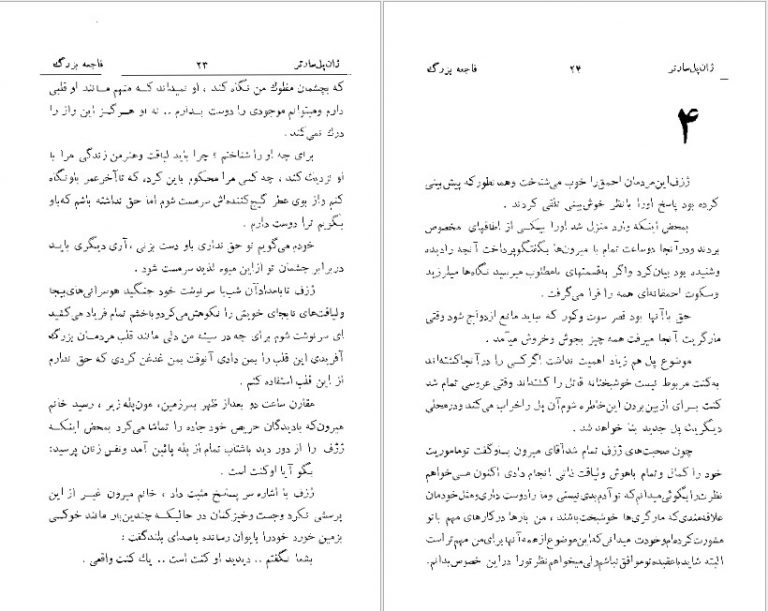 ژان پل سارتر ۲۳ فاجعه بزرگ
که بچشمان مفلوک من نگاه کند ، او نمیداند که منهم مانند او قلبی
دارم ومیتوانم موجودی را دوست بدارم .. نه او هرگز این راز را
درک نمی‌کند .
برای چه او را شناختم ؟ چرا باید لیاقت وهنرمن زندگی مرا با
او نزدیک کند ، چه کسی مرا محکوم باین کرد، که تاآخرعمر باونگاه
کنم واز بوی عطر گیج‌کننده‌اش سرمست شوم اما حق نداشته باشم که‌باو
بگویم ترا دوست دارم .
خودم می‌گویم تو حق نداری باو دست بزنی ، آری دیگری باید
دربرابر چشمان تو ازاین میوه لذیذ سرمست شود .
ژزف تابامدادآن شب‌با سرنوشت خود جنگید هوسرانی‌های‌بیجا
ولیاقت‌های نابجای خویش را نکوهش‌می‌کردوباخشم تمام فریاد می‌کشید
ای سرنوشت شوم برای چه در سینه من دلی مانند قلب مردمان بزرگ
آفریدی این قلب را بمن دادی آنوقت بمن غدغن کردی که حق ندارم
از این قلب استفاده کنم .
مقارن ساعت دو بعداز ظهر بسرزمین، مون‌پله‌زیر ، رسید خانم
میرون‌که بادیدگان حریص خود جاده را تماشا می‌کرد بمحض اینکه
ژزف را از دور دید باشتاب تمام از پله پائین آمد ونفس زنان پرسید:
بگو آیا اوکنت است .
ژزف با اشاره سر پاسخ مثبت داد ، خانم میرون غیر از این
پرسشی نکرد وجست وخیزکنان در حالیکه چندین‌بار مانند خوکی
بزمین خورد خودرا بایوان رسانده باصدای بلندگفت :
بشما نگفتم .. دیدید او کنت است .. یک کنت واقعی .
ژان پل سارتر ۲۴ فاجعه بزرگ
۴
ژزف‌این‌مردمان احمق‌را خوب می‌شناخت وهمانطور‌که پیش‌بینی
کرده بود پاسخ اورا بانظر خوش‌بینی تلقی کردند .
بمحض اینکه وارد منزل شد اورا بیکی از اطاقهای مخصوص
بردند ودرآنجا دوساعت تمام با میرون‌ها بگفتگوپرداخت آنچه رادیده
وشنیده بود بیان‌کرد واگر به‌قسمتهای نامطلوب میرسید نگاه‌ها میلرزید
وسکوت احمقانه‌ای همه را فرا می‌گرفت .
حق باآنها بود قصر سوت وکور که نباید مانع ازدواج شود وقتی
مارگریت آنجا میرفت همه چیز بجوش وخروش میآمد .
موضوع پل هم زیاد اهمیت نداشت اگرکسی را درآنجاکشته‌اند
به‌کنت مربوط نیست خوشبختانه قاتل را کشته‌اند وقتی عروسی تمام شد
کنت برای ازبین‌بردن این‌خاطره شوم‌آن پل راخراب می‌کند ودرمحلی
دیگریک پل جدید بنا خواهد شد .
چون صحبت‌های ژزف تمام شدآقای میرون باوگفت توماموریت
خود را کمال وتمام باهوش ولیاقت ذاتی انجام دادی اکنون می‌خواهم
نظرت رابگوئی‌میدانم‌که توآدم‌بدی‌نیستی وما رادوست داری‌ومثل‌خودمان
علاقه‌مندی‌که مارگریت‌ها خوشبخت‌باشند ، من بارها درکارهای مهم باتو
مشورت‌کرده‌ام‌وخودت میدانی‌که‌این‌موضوع‌ازهمه‌آنها برای‌من مهم‌تراست
البته شاید‌باعقیده‌توموافق نباشم‌ولی‌میخواهم نظرتورا در این خصوص‌بدانم.